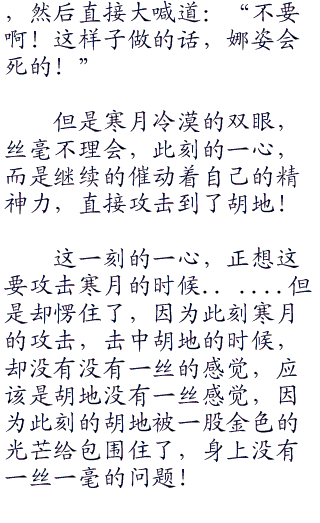 ，然后直接大喊道：“不要
啊！这样子做的话，娜姿会
死的！”
但是寒月冷漠的双眼，
丝毫不理会，此刻的一心，
而是继续的催动着自己的精
神力，直接攻击到了胡地！
这一刻的一心，正想这
要攻击寒月的时候．．．．．．但
是却愣住了，因为此刻寒月
的攻击，击中胡地的时候，
却没有没有一丝的感觉，应
该是胡地没有一丝感觉，因
为此刻的胡地被一股金色的
光芒给包围住了，身上没有
一丝一毫的问题！